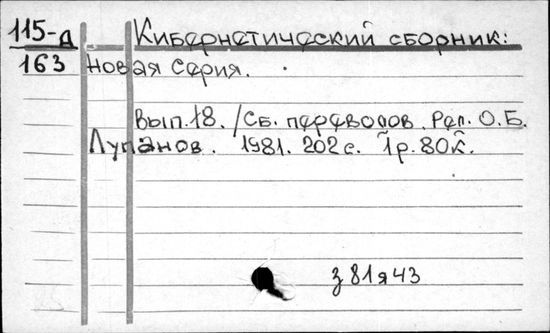 115-д Кибернетический сборник:
163 Новая серия.
Вып. 18. /Сб. переводов. Ред. О.Б.
Лупанов. 1981. 202 с. 1р. 80к.
з 81я43